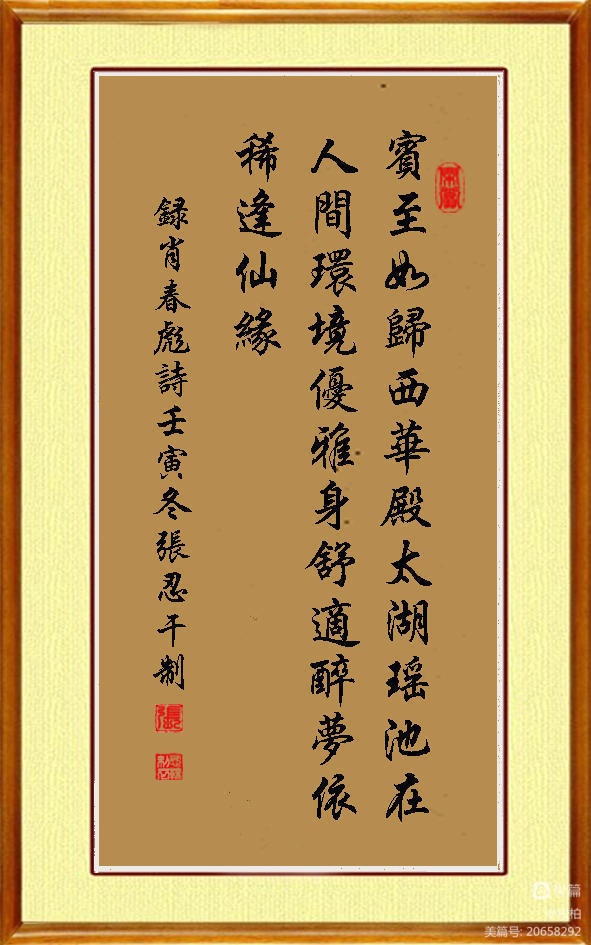 賓至如歸西華殿太湖瑶池在
人間環境優雅身舒適醉夢依
稀逢仙緣
録肖春彪詩壬寅冬張忍干制
張
美篇号: 20658292